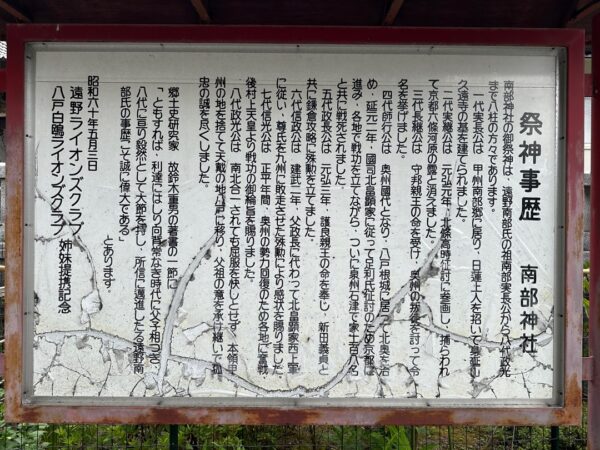 祭神事歴　南部神社
南部神社の御祭神は、遠野南部氏の祖南部実長公から八代政光
まで八柱の方々であります。
一代実長公は　甲州南部郷に居り、日蓮上人を招いて身延山
久遠寺の基を建てられました。
二代実継公は　元弘元年、北條高時征討に参画し、捕らわれ
て京都六條河原の露と消えました。
三代長継公は　守邦親王の命を受け、奥州の叛乱を討って令
名を挙げました。
四代師行公は　奥州國代となり、八戸根城に居って北奥を治
め、延元二年、國司北畠顕家に従って足利氏征討のため京都に
進み、各地で戦功を立てながら、ついに泉州石津で家士百八名
と共に戦死されました。
五代政長公は　元弘三年、護良親王の命を奉じ、新田義貞と
共に鎌倉攻略に殊勲を立てました。
六代信政公は　建武二年、父政長に代わって北畠顕家西上軍
に従い、尊氏を九州に敗走させた殊勲により感状を賜りました。
七代信光公は　正平年間、奥州の勢力回復のため各地に奮戦
後村上天皇より戦功の御綸旨を賜りました。
八代政光公は　南北合一されても屈服を快しとせず、本領甲
州の地を捨てて天戴の地八戸に移り、父祖の意を承け継いで孤
忠の誠を尽くしました。
郷土史研究家　故鈴木重男の著書の一節に
「ともすれば、利達にはしり向背常なき時代に父子相つぎ、
八代に亘り毅然として大節を持し、所信に邁進したる遠野南
部氏の事歴こそ誠に偉大である」
とあります。
昭和六十年五月三日
遠野ライオンズクラブ
八戸白鴎ライオンズクラブ　姉妹提携記念